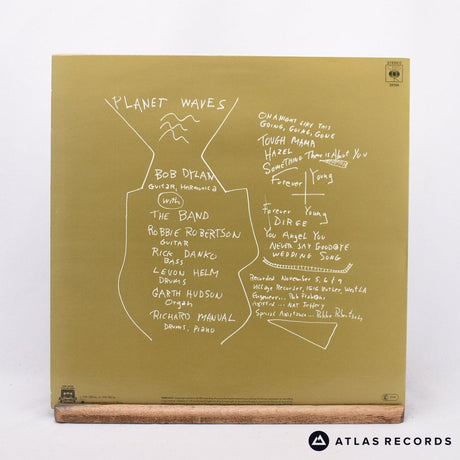 PLANET WAVES
BOB DYLAN
GUITAR, HARMONICA
with
THE BAND
ROBBIE ROBERTSON
GUITAR
RICK DANKO
BASS
LEVON HELM
DRUMS
GARTH HUDSON
Organ
RICHARD MANUAL
DRUMS, PIANO
STEREO
CBS
ON A NIGHT LIKE THIS
GOING, GOING, GONE
TOUGH MAMA
HAZEL
SOMETHING There is About You
Forever Young
Forever Young
DIRGE
You Angel You
NEVER SAY GOODBYE
WEDDING SONG
Recorded November 5, 6, 9
Village Recorder, 1616 Butler, West LA
Engineer... Rob Fraboni
Assisted... NAT Jeffery
Special Assistance... Robbie Robertson
ATLAS RECORDS